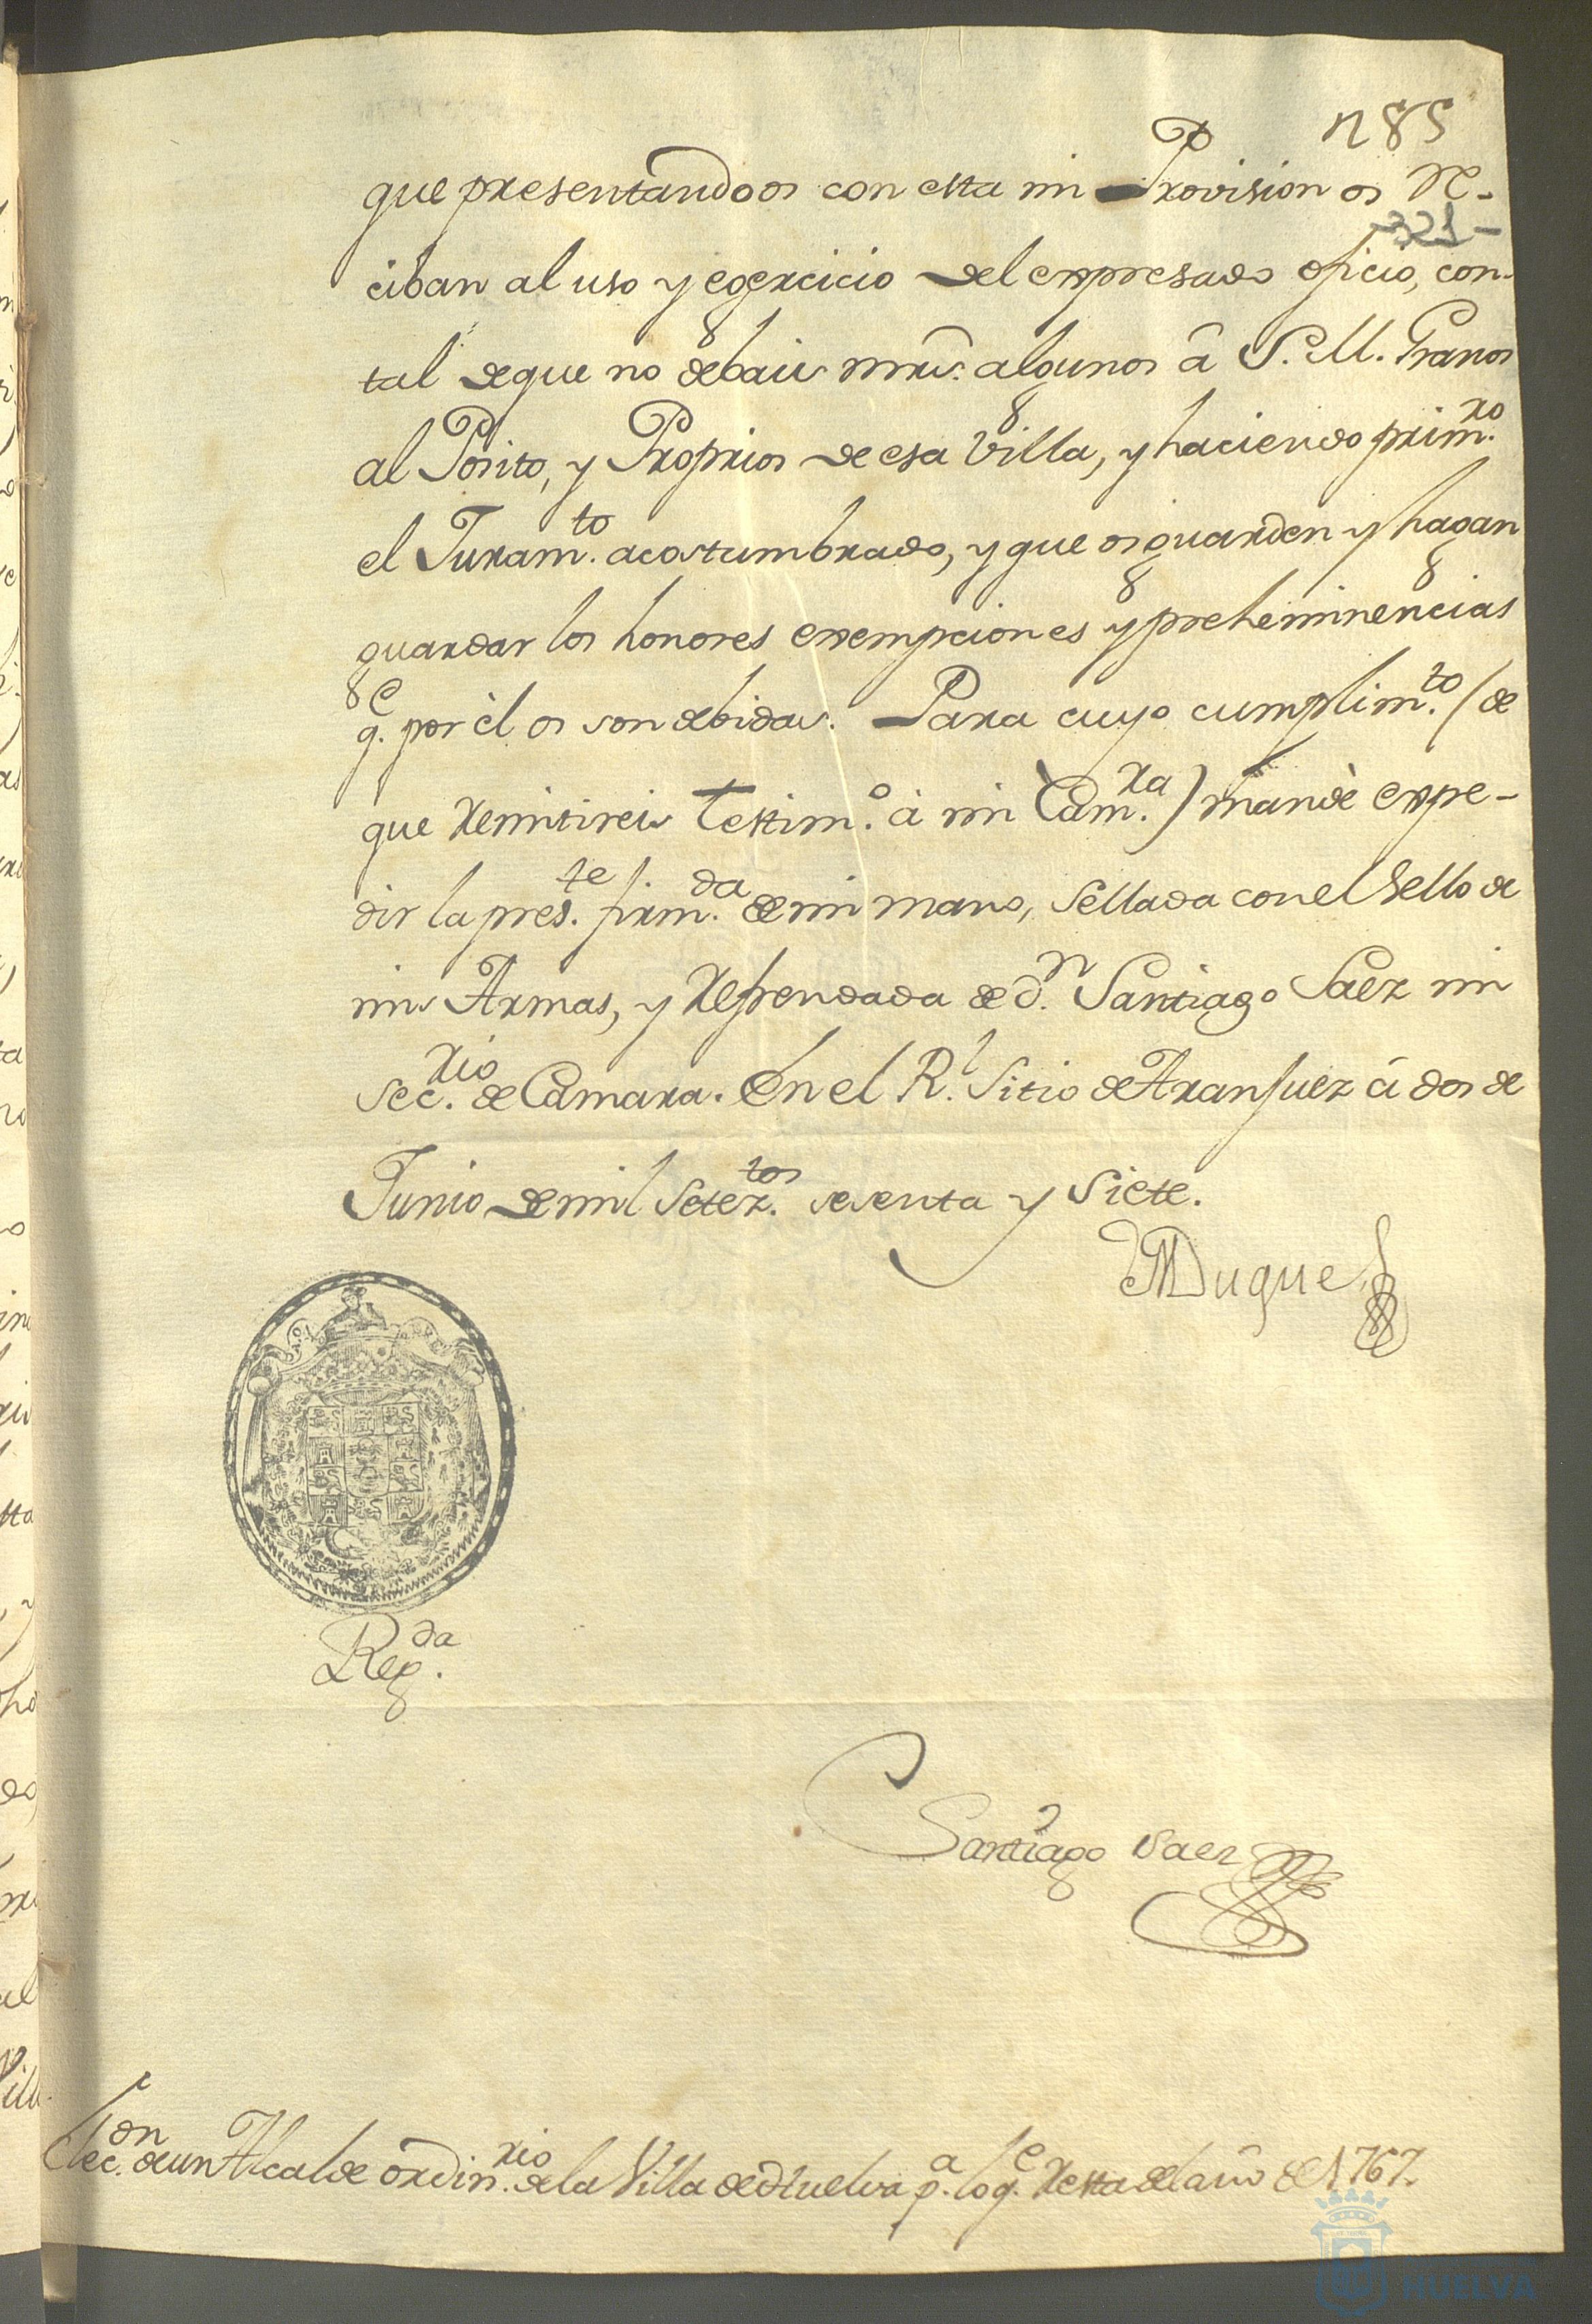 n 85
que presentandoos con esta mi Provision os Re-
321-
ciban al uso y egercicio del expresado oficio, con-
tal deque no debais mrs. algunos â S. M. Granos
al Posito, y Proprios de esa Villa, y haciendo prim.ro
el Juram.to acostumbrado, y que os guarden y hagan
guardar los honores exempciones y preheminencias
q.e por èl os son debidas. Para cuyo cumplim.to (de
que Remitireis Testim.o à mi Cam.ra) mandè expe-
dir la pres.te firm.da de mi mano, sellada con el Sello de
mis Armas, y Refrendada de d.n Santiago Saez mi
Sec.rio de Camara. En el R.l Sitio de Aranjuez à dos de
Junio de mil Setez.tos sesenta y Siete.
El Duque
Reg.da
Santiago Saez
Elec.on de un Alcalde ordin.rio de la Villa de Huelva p.a lo q.e Resta del año de 1767.
HUELVA